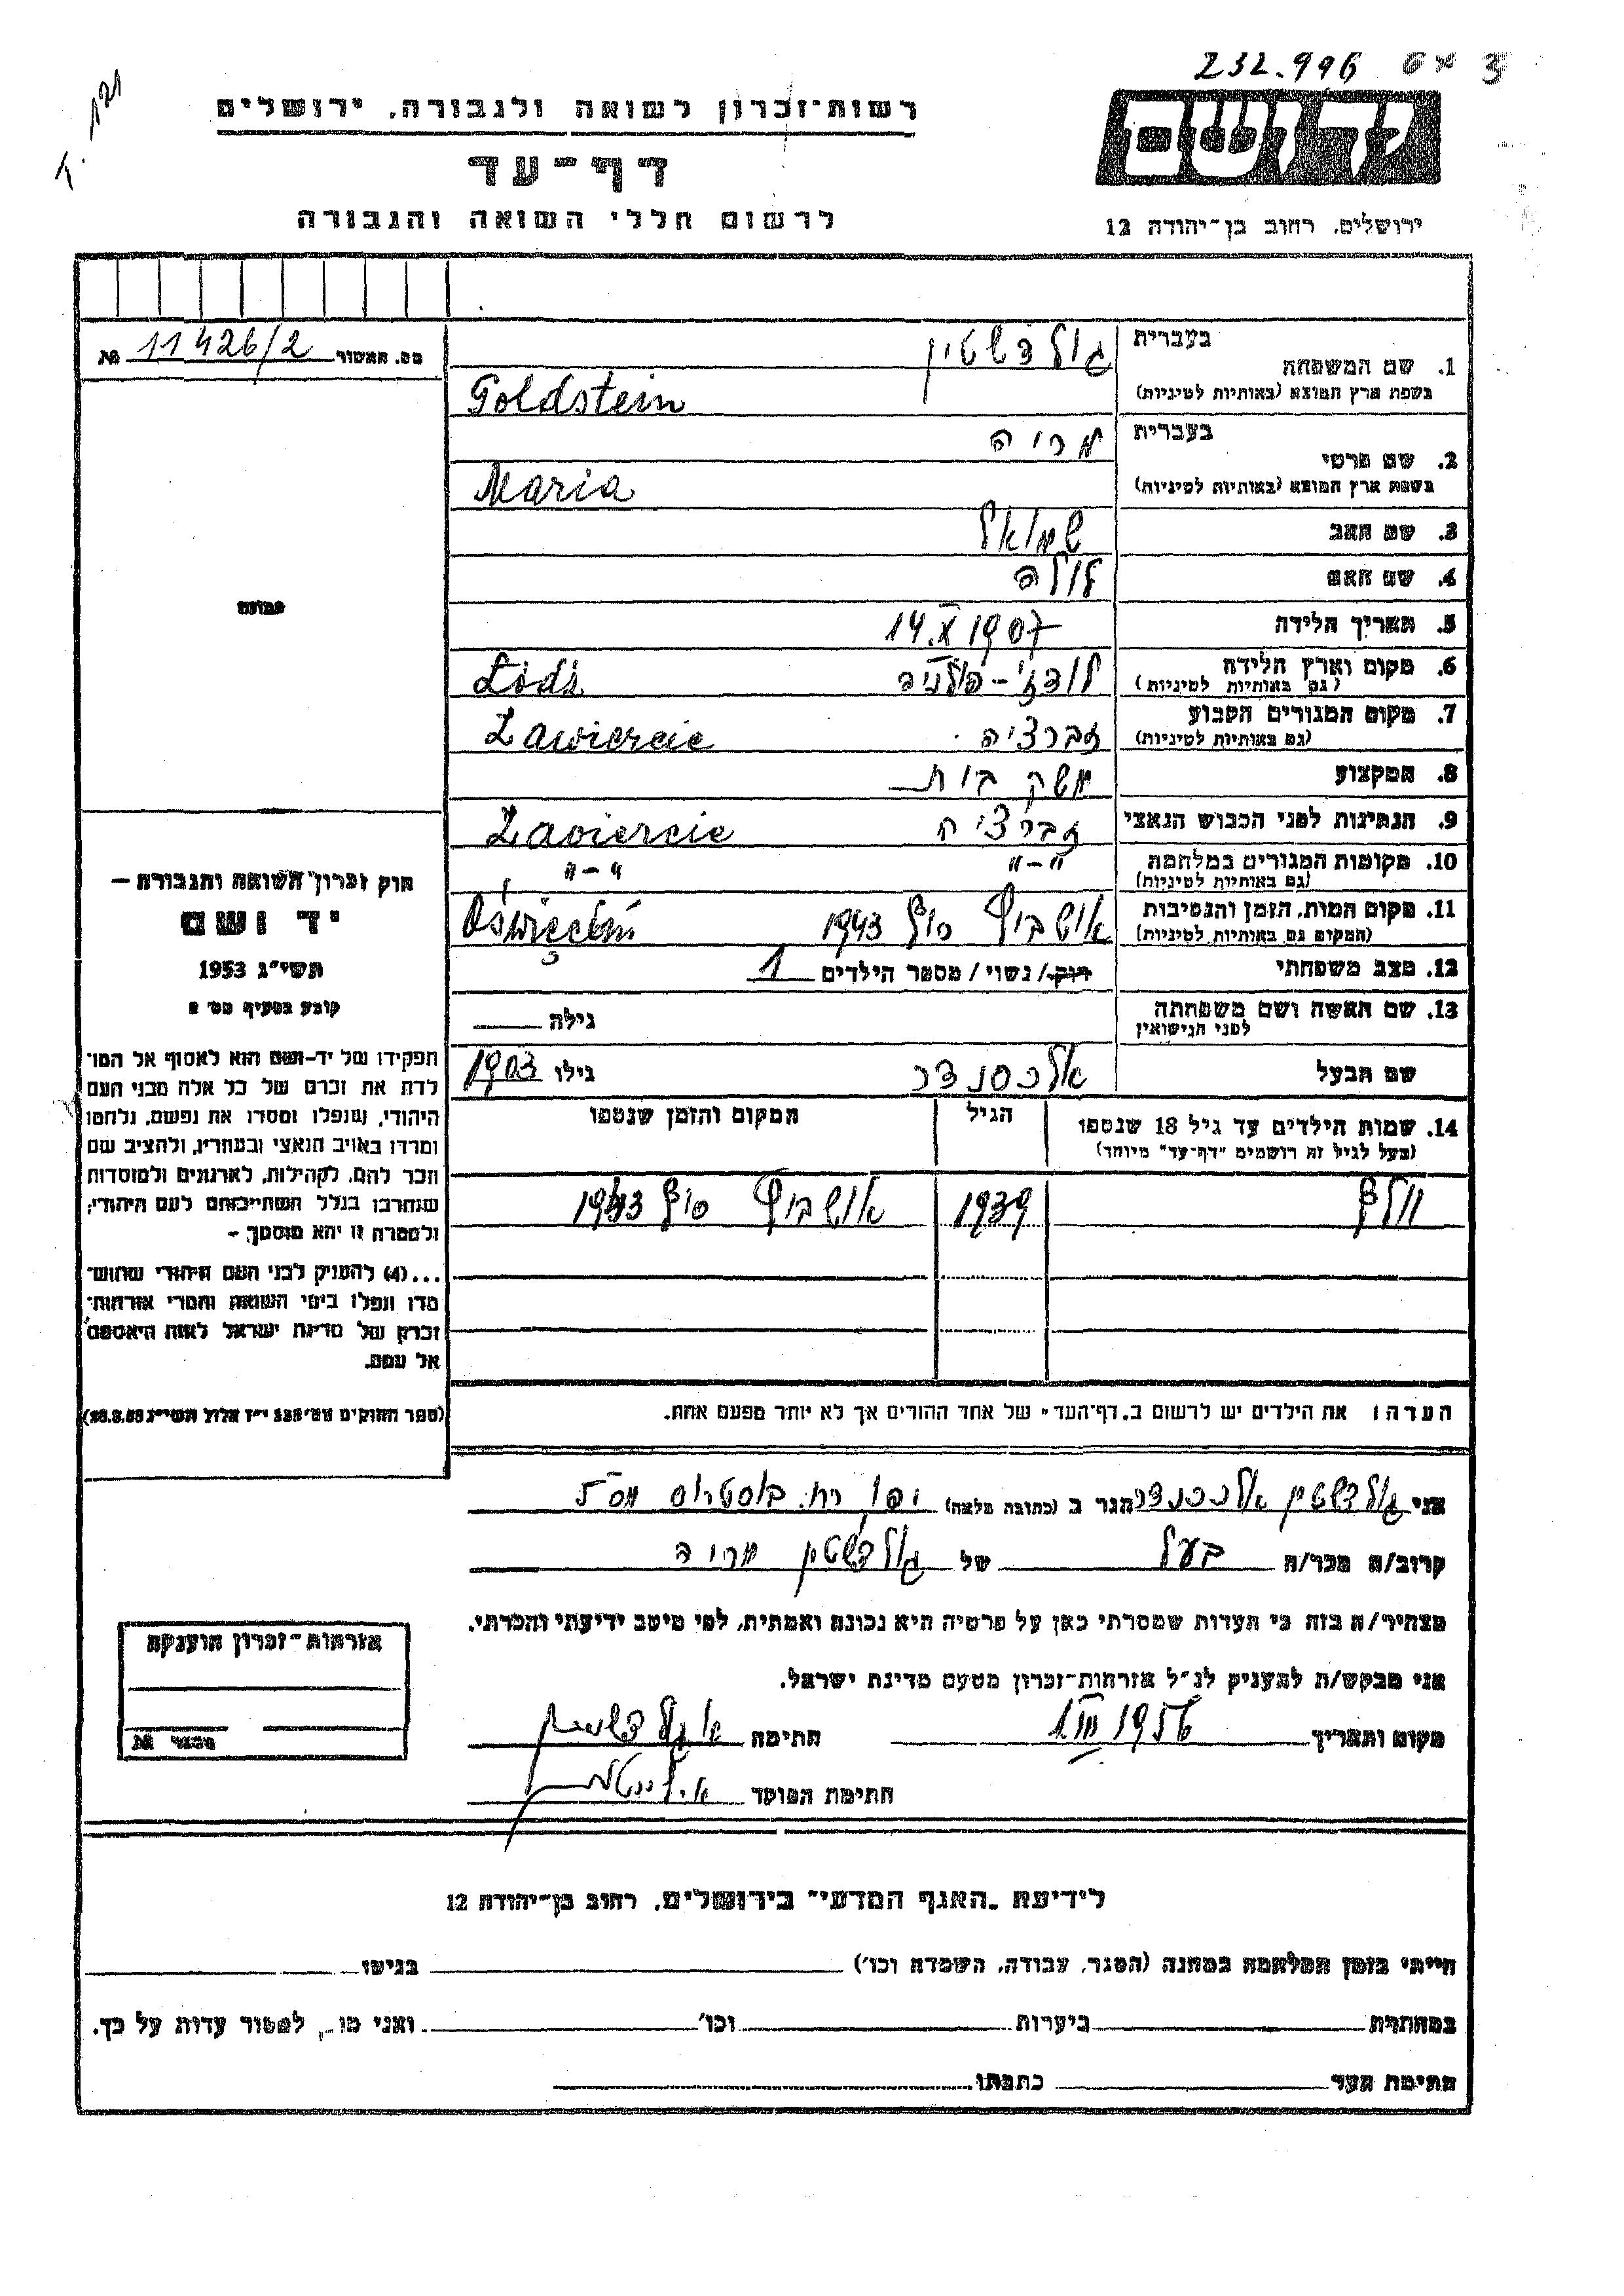 232.996
רשות-זכרון לשואה ולגבורה, ירושלים
ושם
דף-עד
לרשום חללי השואה והגבורה
ירושלים, רחוב בן-יהודה 12
מס. האשור 11426/2 №
1. שם המשפחה
בעברית גולדשטין
בשפת ארץ המוצא (באותיות לטיניות) Goldstein
2. שם פרטי
בעברית מריה
בשפת ארץ המוצא (באותיות לטיניות) Maria
3. שם האב שמואל
4. שם האם לולה
5. תאריך הלידה 14.X 1907
6. מקום וארץ הלידה לודז'-פולניה Łódź
(גם באותיות לטיניות)
7. מקום המגורים הקבוע זברציה Zawiercie
(גם באותיות לטיניות)
8. המקצוע משק בית
9. הנתינות לפני הכבוש הנאצי זברציה Zawiercie
10. מקומות המגורים במלחמה "-" "-"
(גם באותיות לטיניות)
11. מקום המות, הזמן והנסיבות אושביץ סוף 1943 Oświęcim
(המקום גם באותיות לטיניות)
12. מצב משפחתי רווק/ נשוי / מספר הילדים 1
13. שם האשה ושם משפחתה
לפני הנישואין
גילה
שם הבעל אלכסנדר גילו 1903
14. שמות הילדים עד גיל 18 שנספו הגיל המקום והזמן שנספו
(מעל לגיל זה רושמים "דף-עד" מיוחד)
1939 אושביץ סוף 1943
תמונה
חוק זכרון השואה והגבורה –
יד ושם
תשי"ג 1953
קובע בסעיף מס' 2
תפקידו של יד-ושם הוא לאסוף אל המו-
לדת את זכרם של כל אלה מבני העם
היהודי, שנפלו ומסרו את נפשם, נלחמו
ומרדו באויב הנאצי ובעוזריו, ולהציב שם
וזכר להם, לקהילות, לארגונים ולמוסדות
שנחרבו בגלל השתייכותם לעם היהודי;
ולמטרה זו יהא מוסמך –
...(4) להעניק לבני העם היהודי שהוש-
מדו ונפלו בימי השואה והמרי אזרחות-
זכרון של מדינת ישראל לאות היאספם
אל עמם.
(ספר החוקים מס' 132 י"ז אלול תשי"ג 28.8.53)
הערה: את הילדים יש לרשום ב"דף-העד" של אחד ההורים אך לא יותר מפעם אחת.
אני גולדשטין אלכסנדר הגר ב (כתובת מלאה) יפו רח. בוסטרוס מס' 5
קרוב/ה מכר/ה בעל של גולדשטין מריה
מצהיר/ה בזה כי העדות שמסרתי כאן על פרטיה היא נכונה ואמתית, לפי מיטב ידיעתי והכרתי.
אני מבקש/ת להעניק לנ"ל אזרחות-זכרון מטעם מדינת ישראל.
מקום ותאריך 1956 חתימה א גולדשטין
חתימת הפוקד
אזרחות-זכרון הוענקה
מספר №
לידיעת "האגף המדעי" בירושלים, רחוב בן-יהודה 12
הייתי בזמן המלחמה במחנה (הסגר, עבודה, השמדה וכו') בגיטו
במחתרת ביערות וכו' ואני למסור עדות על כך.
חתימת העד כתבתו